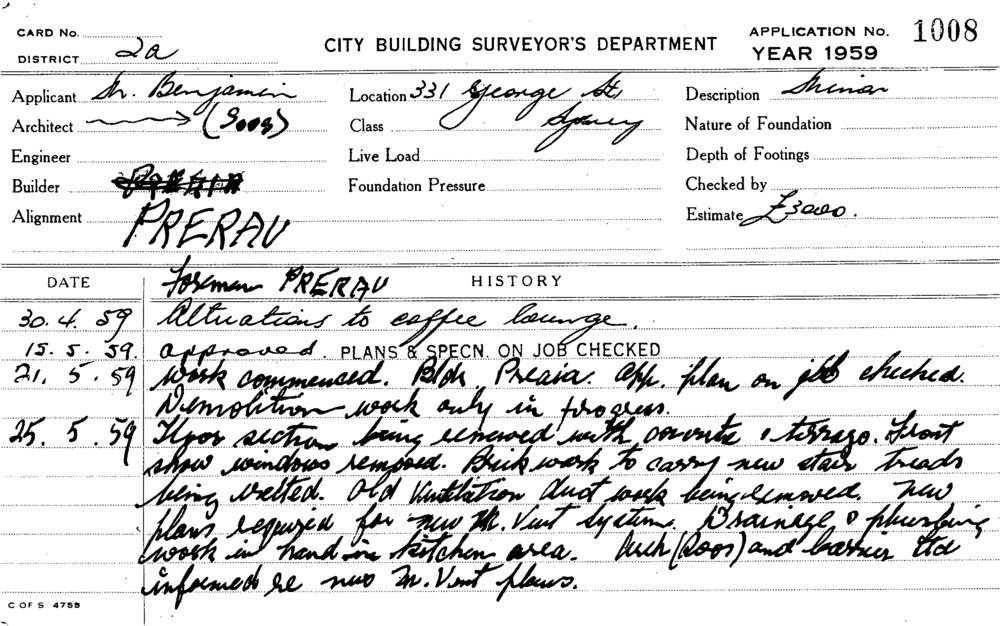 CARD No.
DISTRICT 2a
CITY BUILDING SURVEYOR'S DEPARTMENT
APPLICATION No. 1008
YEAR 1959
Applicant Benjamin
Location 331 George St,
Sydney
Description
Architect (Soos)
Class
Nature of Foundation
Engineer
Live Load
Depth of Footings
Builder
Foundation Pressure
Checked by
Alignment PRERAU
Estimate £3000.
DATE
Foreman PRERAU
HISTORY
30.4.59 Altuations to coffee lounge.
15.5.59. approved. PLANS & SPECN. ON JOB CHECKED
21.5.59 Work commenced. Bldr. App. plan on job checked.
Demolition work only in progress.
25.5.59 Floor section being renewed with concrete & terrazo. Front
show windows removed. Brick work to carry new stair treads
being erected. Old Ventilation duct work being removed. New
plans required for new M. Vent System. Drainage & plumbing
work in hand in kitchen area. Arch (Soos) and Ltd
informed re new M. Vent plans.
C OF S 4759